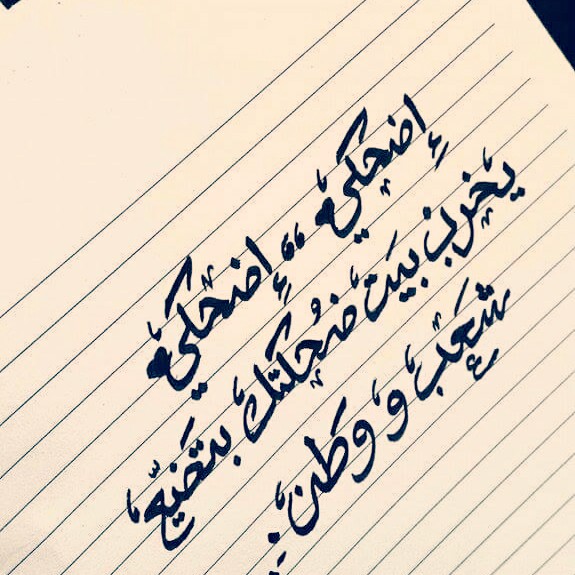 إضحكي ،، إضحكي
يخرب بيت ضحكتك بتضيّع
شعب و وطن